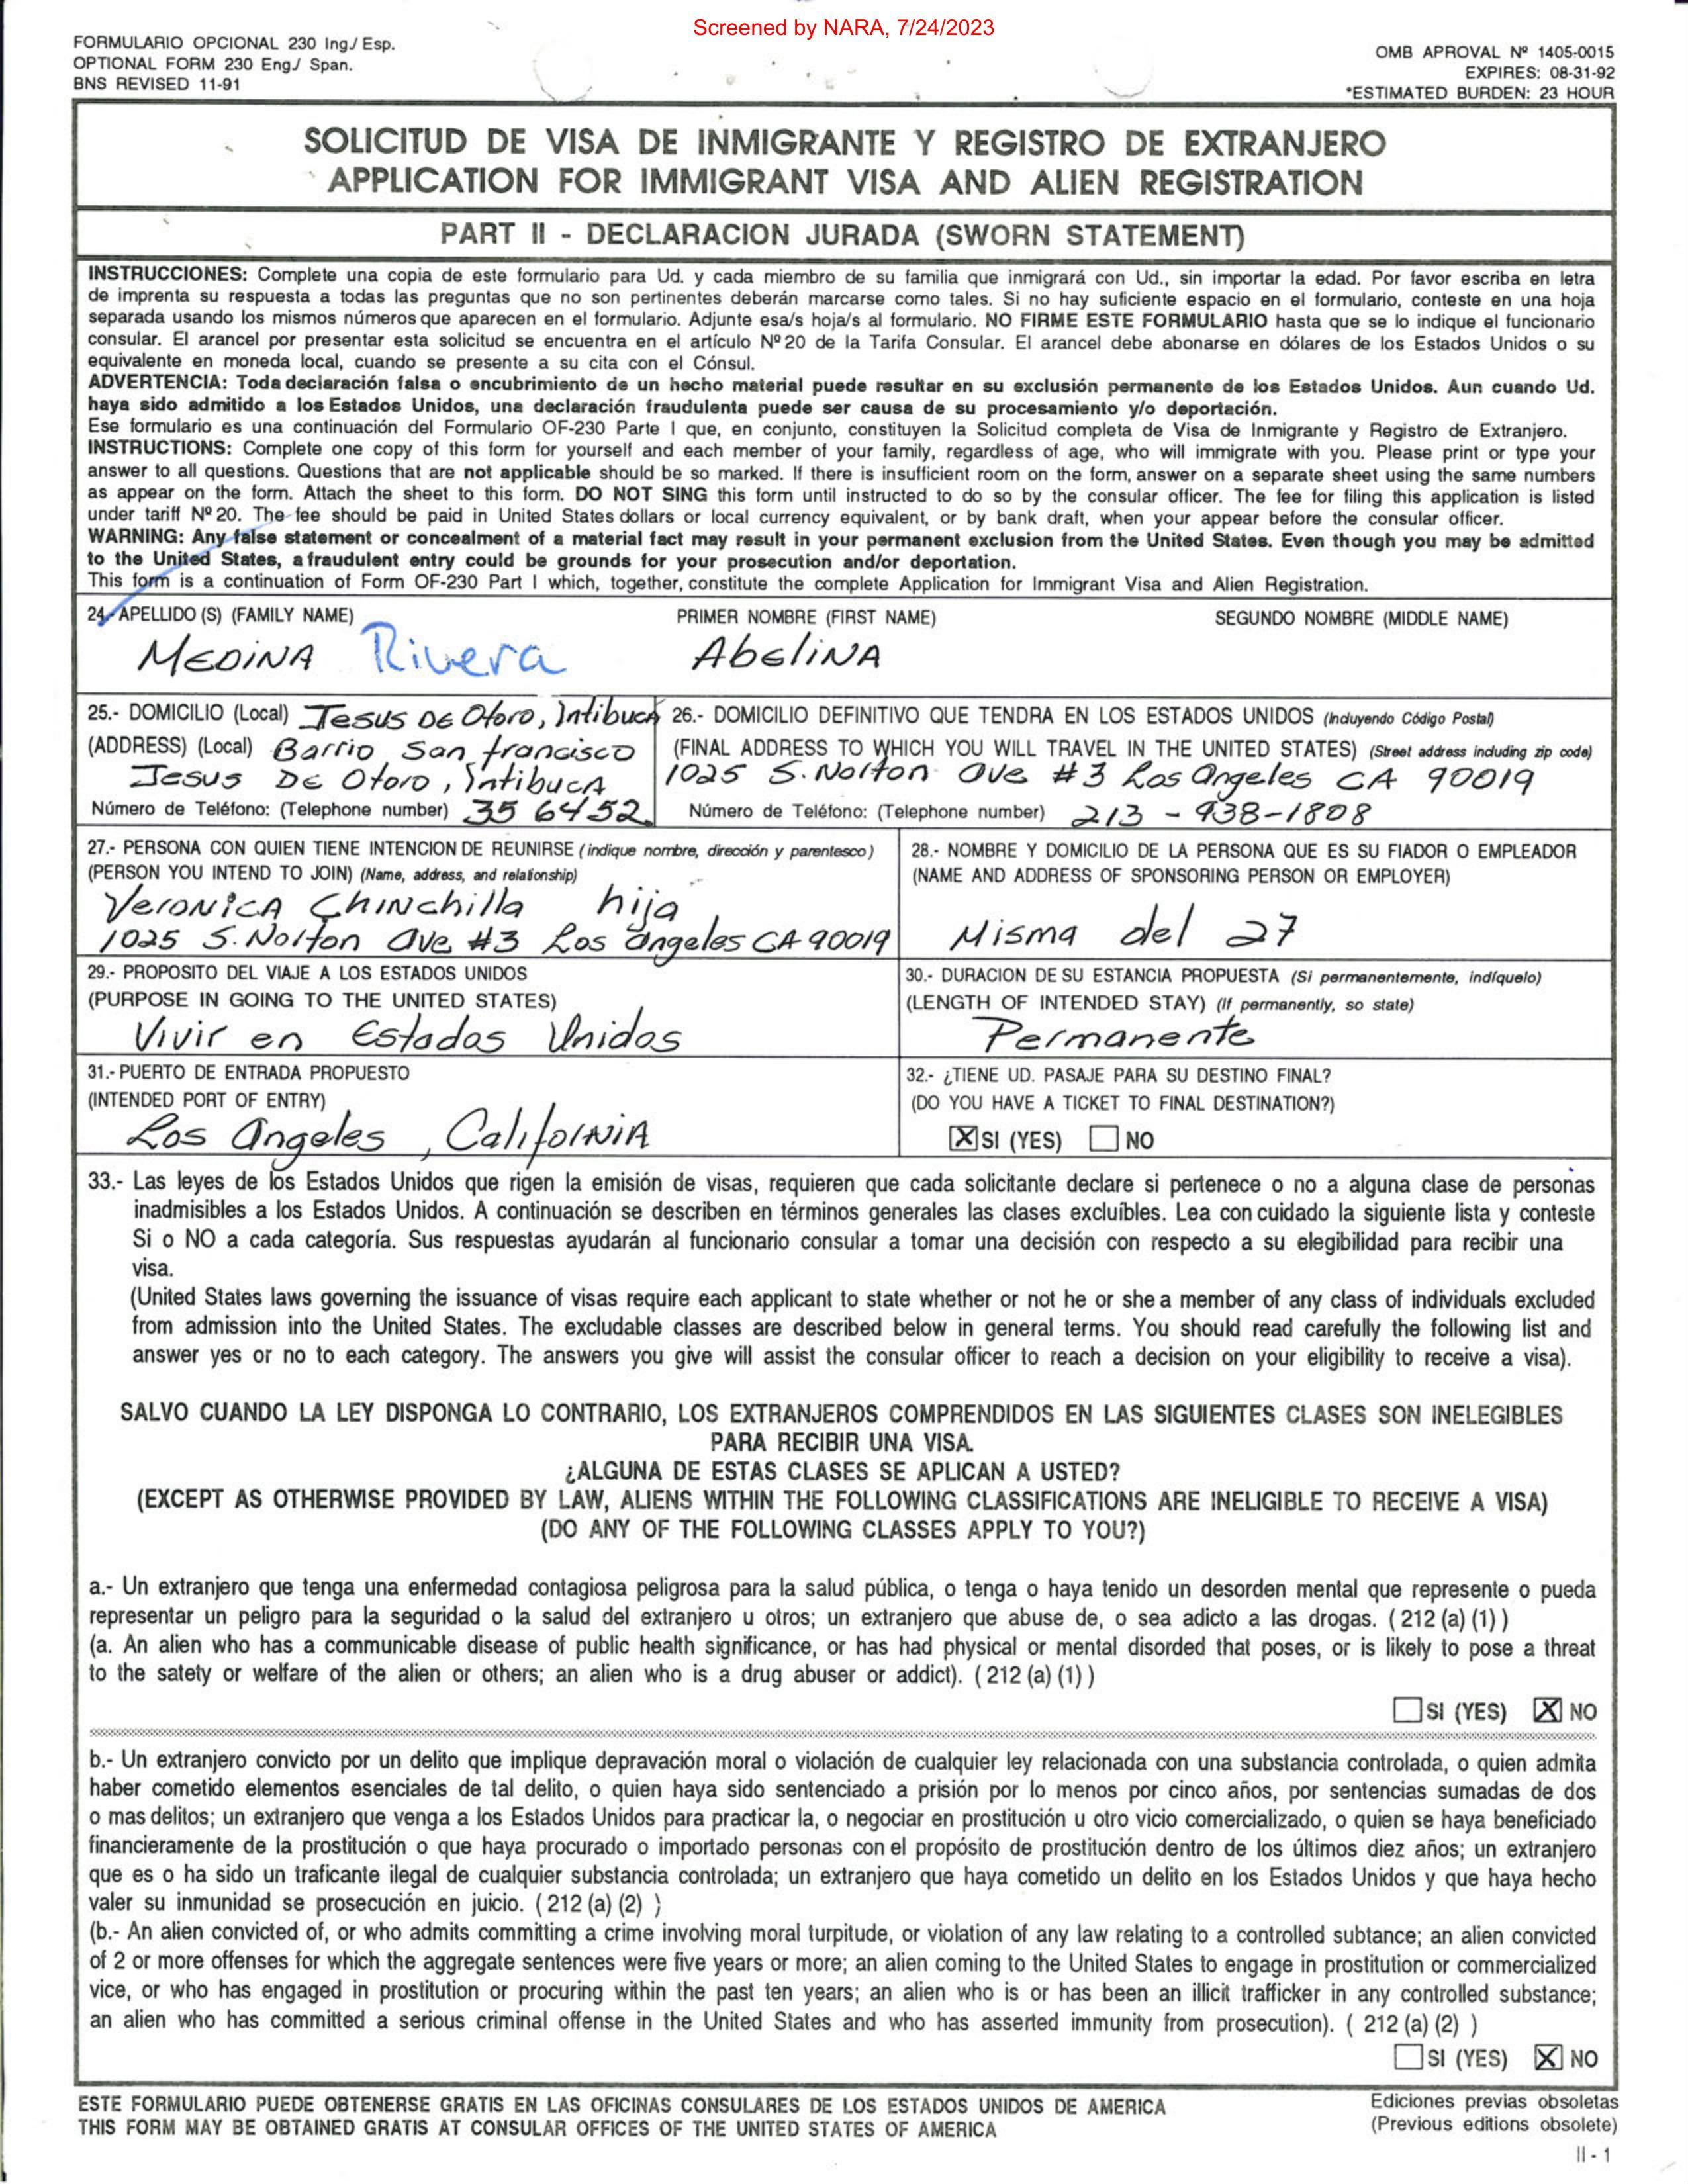 Screened by NARA, 7/24/2023
FORMULARIO OPCIONAL 230 Ing./ Esp.
OPTIONAL FORM 230 Eng./ Span.
BNS REVISED 11-91
OMB APROVAL Nº 1405-0015
EXPIRES: 08-31-92
*ESTIMATED BURDEN: 23 HOUR
SOLICITUD DE VISA DE INMIGRANTE Y REGISTRO DE EXTRANJERO
APPLICATION FOR IMMIGRANT VISA AND ALIEN REGISTRATION
PART II - DECLARACION JURADA (SWORN STATEMENT)
INSTRUCCIONES: Complete una copia de este formulario para Ud. y cada miembro de su familia que inmigrará con Ud., sin importar la edad. Por favor escriba en letra
de imprenta su respuesta a todas las preguntas que no son pertinentes deberán marcarse como tales. Si no hay suficiente espacio en el formulario, conteste en una hoja
separada usando los mismos números que aparecen en el formulario. Adjunte esa/s hoja/s al formulario. NO FIRME ESTE FORMULARIO hasta que se lo indique el funcionario
consular. El arancel por presentar esta solicitud se encuentra en el artículo Nº 20 de la Tarifa Consular. El arancel debe abonarse en dólares de los Estados Unidos o su
equivalente en moneda local, cuando se presente a su cita con el Cónsul.
ADVERTENCIA: Toda declaración falsa o encubrimiento de un hecho material puede resultar en su exclusión permanente de los Estados Unidos. Aun cuando Ud.
haya sido admitido a los Estados Unidos, una declaración fraudulenta puede ser causa de su procesamiento y/o deportación.
Ese formulario es una continuación del Formulario OF-230 Parte I que, en conjunto, constituyen la Solicitud completa de Visa de Inmigrante y Registro de Extranjero.
INSTRUCTIONS: Complete one copy of this form for yourself and each member of your family, regardless of age, who will immigrate with you. Please print or type your
answer to all questions. Questions that are not applicable should be so marked. If there is insufficient room on the form, answer on a separate sheet using the same numbers
as appear on the form. Attach the sheet to this form. DO NOT SING this form until instructed to do so by the consular officer. The fee for filing this application is listed
under tariff Nº 20. The fee should be paid in United States dollars or local currency equivalent, or by bank draft, when your appear before the consular officer.
WARNING: Any false statement or concealment of a material fact may result in your permanent exclusion from the United States. Even though you may be admitted
to the United States, a fraudulent entry could be grounds for your prosecution and/or deportation.
This form is a continuation of Form OF-230 Part I which, together, constitute the complete Application for Immigrant Visa and Alien Registration.
24.- APELLIDO (S) (FAMILY NAME) PRIMER NOMBRE (FIRST NAME) SEGUNDO NOMBRE (MIDDLE NAME)
MEDINA Rivera Abelina
25.- DOMICILIO (Local) Jesus De Otoro, Intibuca
(ADDRESS) (Local) Barrio San francisco
Jesus De Otoro, Intibuca
Número de Teléfono: (Telephone number) 35 6452
26.- DOMICILIO DEFINITIVO QUE TENDRA EN LOS ESTADOS UNIDOS (Incluyendo Código Postal)
(FINAL ADDRESS TO WHICH YOU WILL TRAVEL IN THE UNITED STATES) (Street address including zip code)
1025 S. Norton Ave #3 Los Angeles CA 90019
Número de Teléfono: (Telephone number) 213 - 938-1808
27.- PERSONA CON QUIEN TIENE INTENCION DE REUNIRSE (indique nombre, dirección y parentesco)
(PERSON YOU INTEND TO JOIN) (Name, address, and relationship)
Veronica Chinchilla hija
1025 S. Norton Ave #3 Los Angeles CA 90019
28.- NOMBRE Y DOMICILIO DE LA PERSONA QUE ES SU FIADOR O EMPLEADOR
(NAME AND ADDRESS OF SPONSORING PERSON OR EMPLOYER)
Misma del 27
29.- PROPOSITO DEL VIAJE A LOS ESTADOS UNIDOS
(PURPOSE IN GOING TO THE UNITED STATES)
Vivir en Estados Unidos
30.- DURACION DE SU ESTANCIA PROPUESTA (Si permanentemente, indíquelo)
(LENGTH OF INTENDED STAY) (If permanently, so state)
Permanente
31.- PUERTO DE ENTRADA PROPUESTO
(INTENDED PORT OF ENTRY)
Los Angeles, California
32.- ¿TIENE UD. PASAJE PARA SU DESTINO FINAL?
(DO YOU HAVE A TICKET TO FINAL DESTINATION?)
X SI (YES) NO
33.- Las leyes de los Estados Unidos que rigen la emisión de visas, requieren que cada solicitante declare si pertenece o no a alguna clase de personas
inadmisibles a los Estados Unidos. A continuación se describen en términos generales las clases excluíbles. Lea con cuidado la siguiente lista y conteste
Si o NO a cada categoría. Sus respuestas ayudarán al funcionario consular a tomar una decisión con respecto a su elegibilidad para recibir una
visa.
(United States laws governing the issuance of visas require each applicant to state whether or not he or she a member of any class of individuals excluded
from admission into the United States. The excludable classes are described below in general terms. You should read carefully the following list and
answer yes or no to each category. The answers you give will assist the consular officer to reach a decision on your eligibility to receive a visa).
SALVO CUANDO LA LEY DISPONGA LO CONTRARIO, LOS EXTRANJEROS COMPRENDIDOS EN LAS SIGUIENTES CLASES SON INELEGIBLES
PARA RECIBIR UNA VISA.
¿ALGUNA DE ESTAS CLASES SE APLICAN A USTED?
(EXCEPT AS OTHERWISE PROVIDED BY LAW, ALIENS WITHIN THE FOLLOWING CLASSIFICATIONS ARE INELIGIBLE TO RECEIVE A VISA)
(DO ANY OF THE FOLLOWING CLASSES APPLY TO YOU?)
a.- Un extranjero que tenga una enfermedad contagiosa peligrosa para la salud pública, o tenga o haya tenido un desorden mental que represente o pueda
representar un peligro para la seguridad o la salud del extranjero u otros; un extranjero que abuse de, o sea adicto a las drogas. ( 212 (a) (1) )
(a. An alien who has a communicable disease of public health significance, or has had physical or mental disorded that poses, or is likely to pose a threat
to the satety or welfare of the alien or others; an alien who is a drug abuser or addict). ( 212 (a) (1) )
SI (YES) X NO
b.- Un extranjero convicto por un delito que implique depravación moral o violación de cualquier ley relacionada con una substancia controlada, o quien admita
haber cometido elementos esenciales de tal delito, o quien haya sido sentenciado a prisión por lo menos por cinco años, por sentencias sumadas de dos
o mas delitos; un extranjero que venga a los Estados Unidos para practicar la, o negociar en prostitución u otro vicio comercializado, o quien se haya beneficiado
financieramente de la prostitución o que haya procurado o importado personas con el propósito de prostitución dentro de los últimos diez años; un extranjero
que es o ha sido un traficante ilegal de cualquier substancia controlada; un extranjero que haya cometido un delito en los Estados Unidos y que haya hecho
valer su inmunidad se prosecución en juicio. ( 212 (a) (2) )
(b.- An alien convicted of, or who admits committing a crime involving moral turpitude, or violation of any law relating to a controlled subtance; an alien convicted
of 2 or more offenses for which the aggregate sentences were five years or more; an alien coming to the United States to engage in prostitution or commercialized
vice, or who has engaged in prostitution or procuring within the past ten years; an alien who is or has been an illicit trafficker in any controlled substance;
an alien who has committed a serious criminal offense in the United States and who has asserted immunity from prosecution). ( 212 (a) (2) )
SI (YES) X NO
ESTE FORMULARIO PUEDE OBTENERSE GRATIS EN LAS OFICINAS CONSULARES DE LOS ESTADOS UNIDOS DE AMERICA
THIS FORM MAY BE OBTAINED GRATIS AT CONSULAR OFFICES OF THE UNITED STATES OF AMERICA
Ediciones previas obsoletas
(Previous editions obsolete)
II - 1